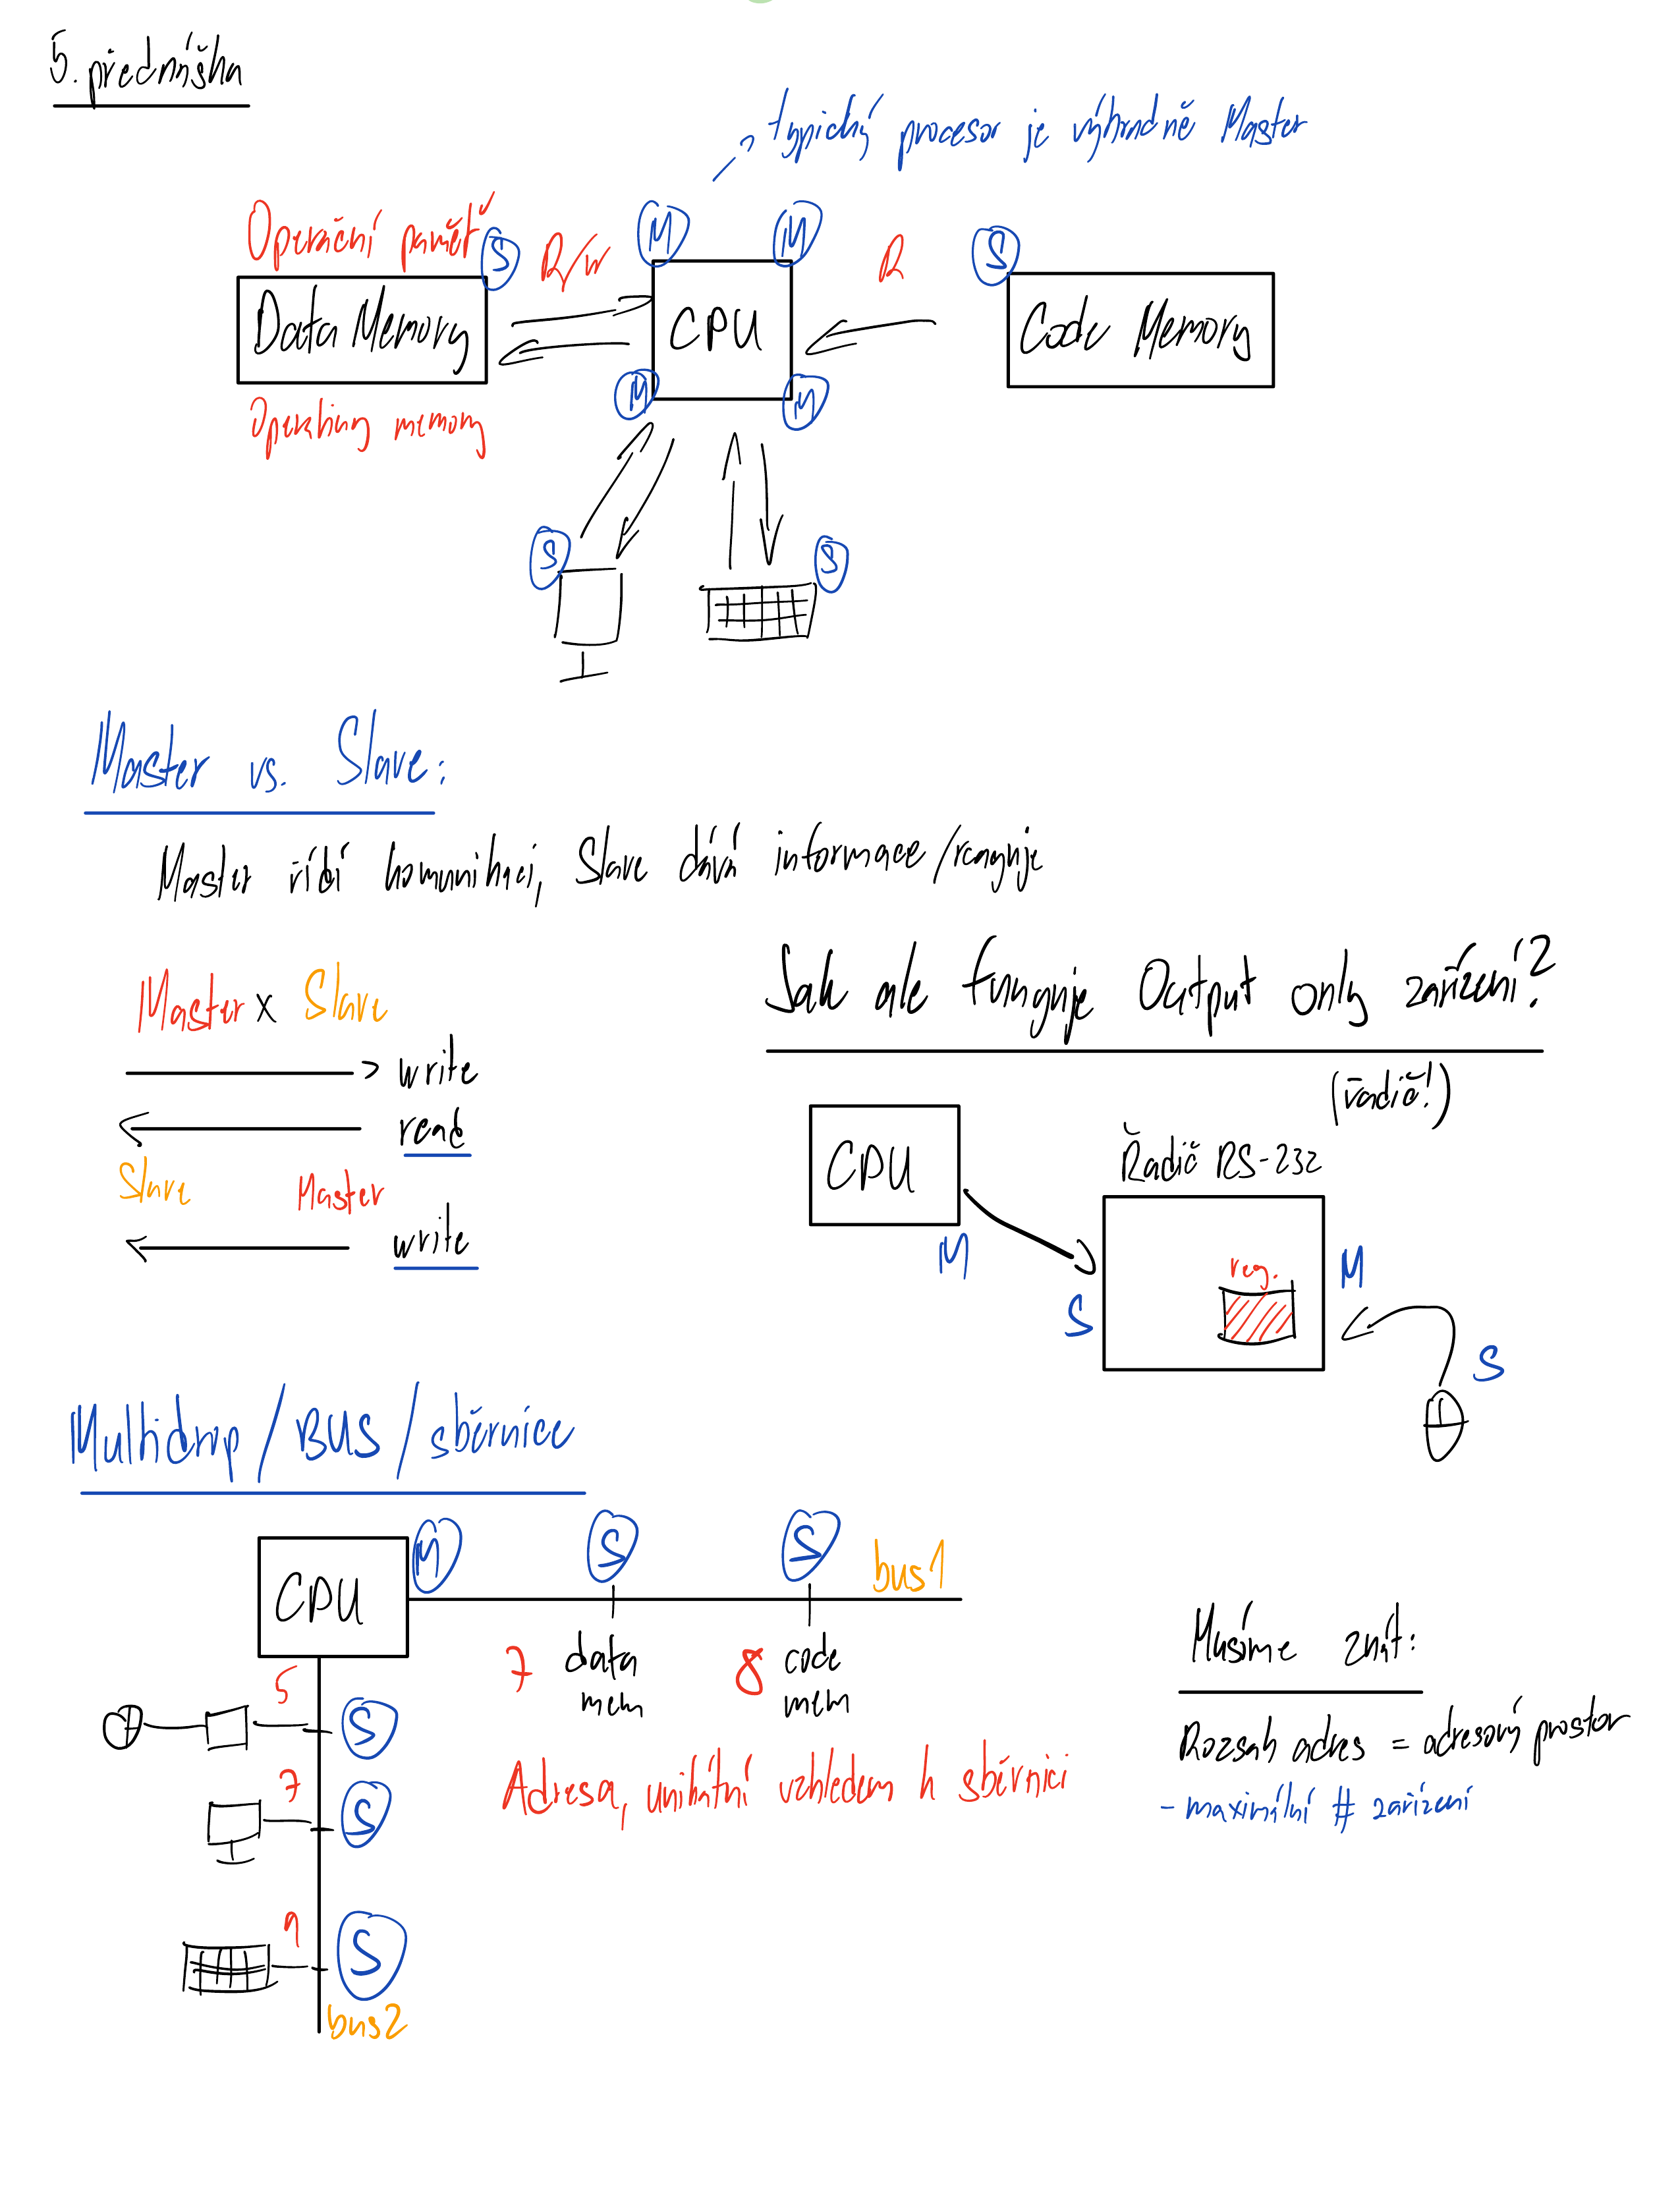 5. přednáška
typický procesor je výhradně Master
Operační paměť
S
R/W
M
M
R
S
Data Memory
CPU
Code Memory
Operating memory
M
M
S
S
Master vs. Slave:
Master řídí komunikaci, Slave dává informace/reaguje
Master x Slave
write
read
Slave Master
write
Jak ale funguje Output only zařízení?
(řadič!)
CPU
Řadič RS-232
M
S
reg.
M
S
Multidrop/BUS/sběrnice
CPU
M
S
S
bus1
7 data mem
8 code mem
5
S
7
S
9
S
bus2
Adresa, unikátní vzhledem k sběrnici
Musíme znát:
Rozsah adres = adresový prostor
- maximální # zařízení